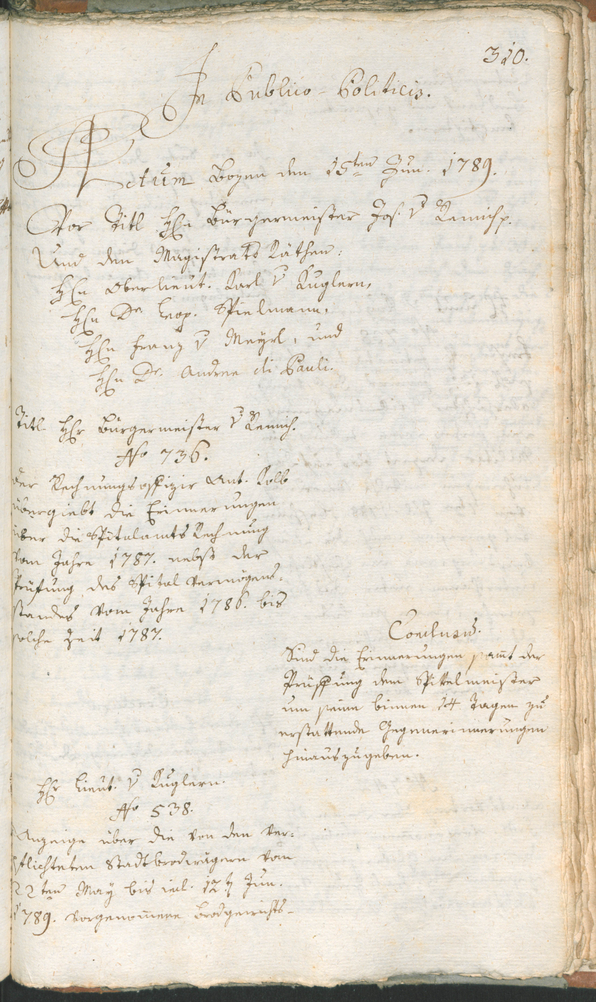 310.
In Publico-Politicis.
Actum Bozen den 15ten Jun. 1789.
Vor Titl Hhn Bürgermeister Jos. v Remich
Und den Magistrats Räthen:
Hhn Oberlieut. Karl v Kuglern,
Hhn Dr Leop. Spielmann,
Hhn Franz v Mayrl, und
Hhn Dr. Andree di Pauli.
Titl Hhr Bürgermeister v Remich.
No 736.
Der Rechnungsoffizir Ant. Kolb
übergiebt die Erinnerungen
über die Spitalamts Rechnung
vom Jahre 1787. nebst der
Prüfung des Spital Vermögens-
standes vom Jahre 1786. bis
solche Zeit 1787.
Conclusum.
Sind die Erinnerungen samt der
Prüfung dem Spitelmeister
um seine binnen 14 Tagen zu
erstattende Gegenerinnerungen
hinauszugeben.
Hhr Lieut. v Kuglern.
No 538.
Anzeige über die von den ver-
pflichteten Stadtbrodwägern vom
22ten May bis incl. 12ten Jun.
1789. vorgenomene Brodgewichts-